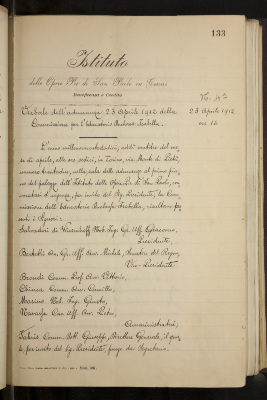 133
Istituto
delle Opere Pie di San Paolo in Torino
Beneficenza e Credito
Verbale dell'adunanza 23 Aprile 1912 della
Commissione per l'Educatorio Duchessa Isabella.
23 Aprile 1912
ore 16
L'anno millenovecentododici, addì ventitre del me-
se di aprile, alle ore sedici, in Torino, via Monte di Pietà,
numero trentadue, nella sala delle adunanze al primo pia-
no del palazzo dell'Istituto delle Opere Pie di San Paolo, con-
vocatasi d'urgenza, per invito del Sig. Presidente, la Com-
missione dell'Educatorio Duchessa Isabella, risultano pre-
senti i Signori:
Salvadori di Wiesenhoff Nob. Gr. Uff. Giacomo,
Presidente,
Bertetti Avv. Gr. Uff. Avv. Michele, Senatore del Regno,
Vice-Presidente
Brondi Comm. Prof. Avv. Vittorio,
Comm. Avv. Camillo,
Nob. Ing.
Cav. Uff. Avv. Pietro,
Amministratori;
Comm. Dott. Giuseppe, Direttore Generale, il qua-
le, per invito del Sig. Presidente, funge da Segretario.